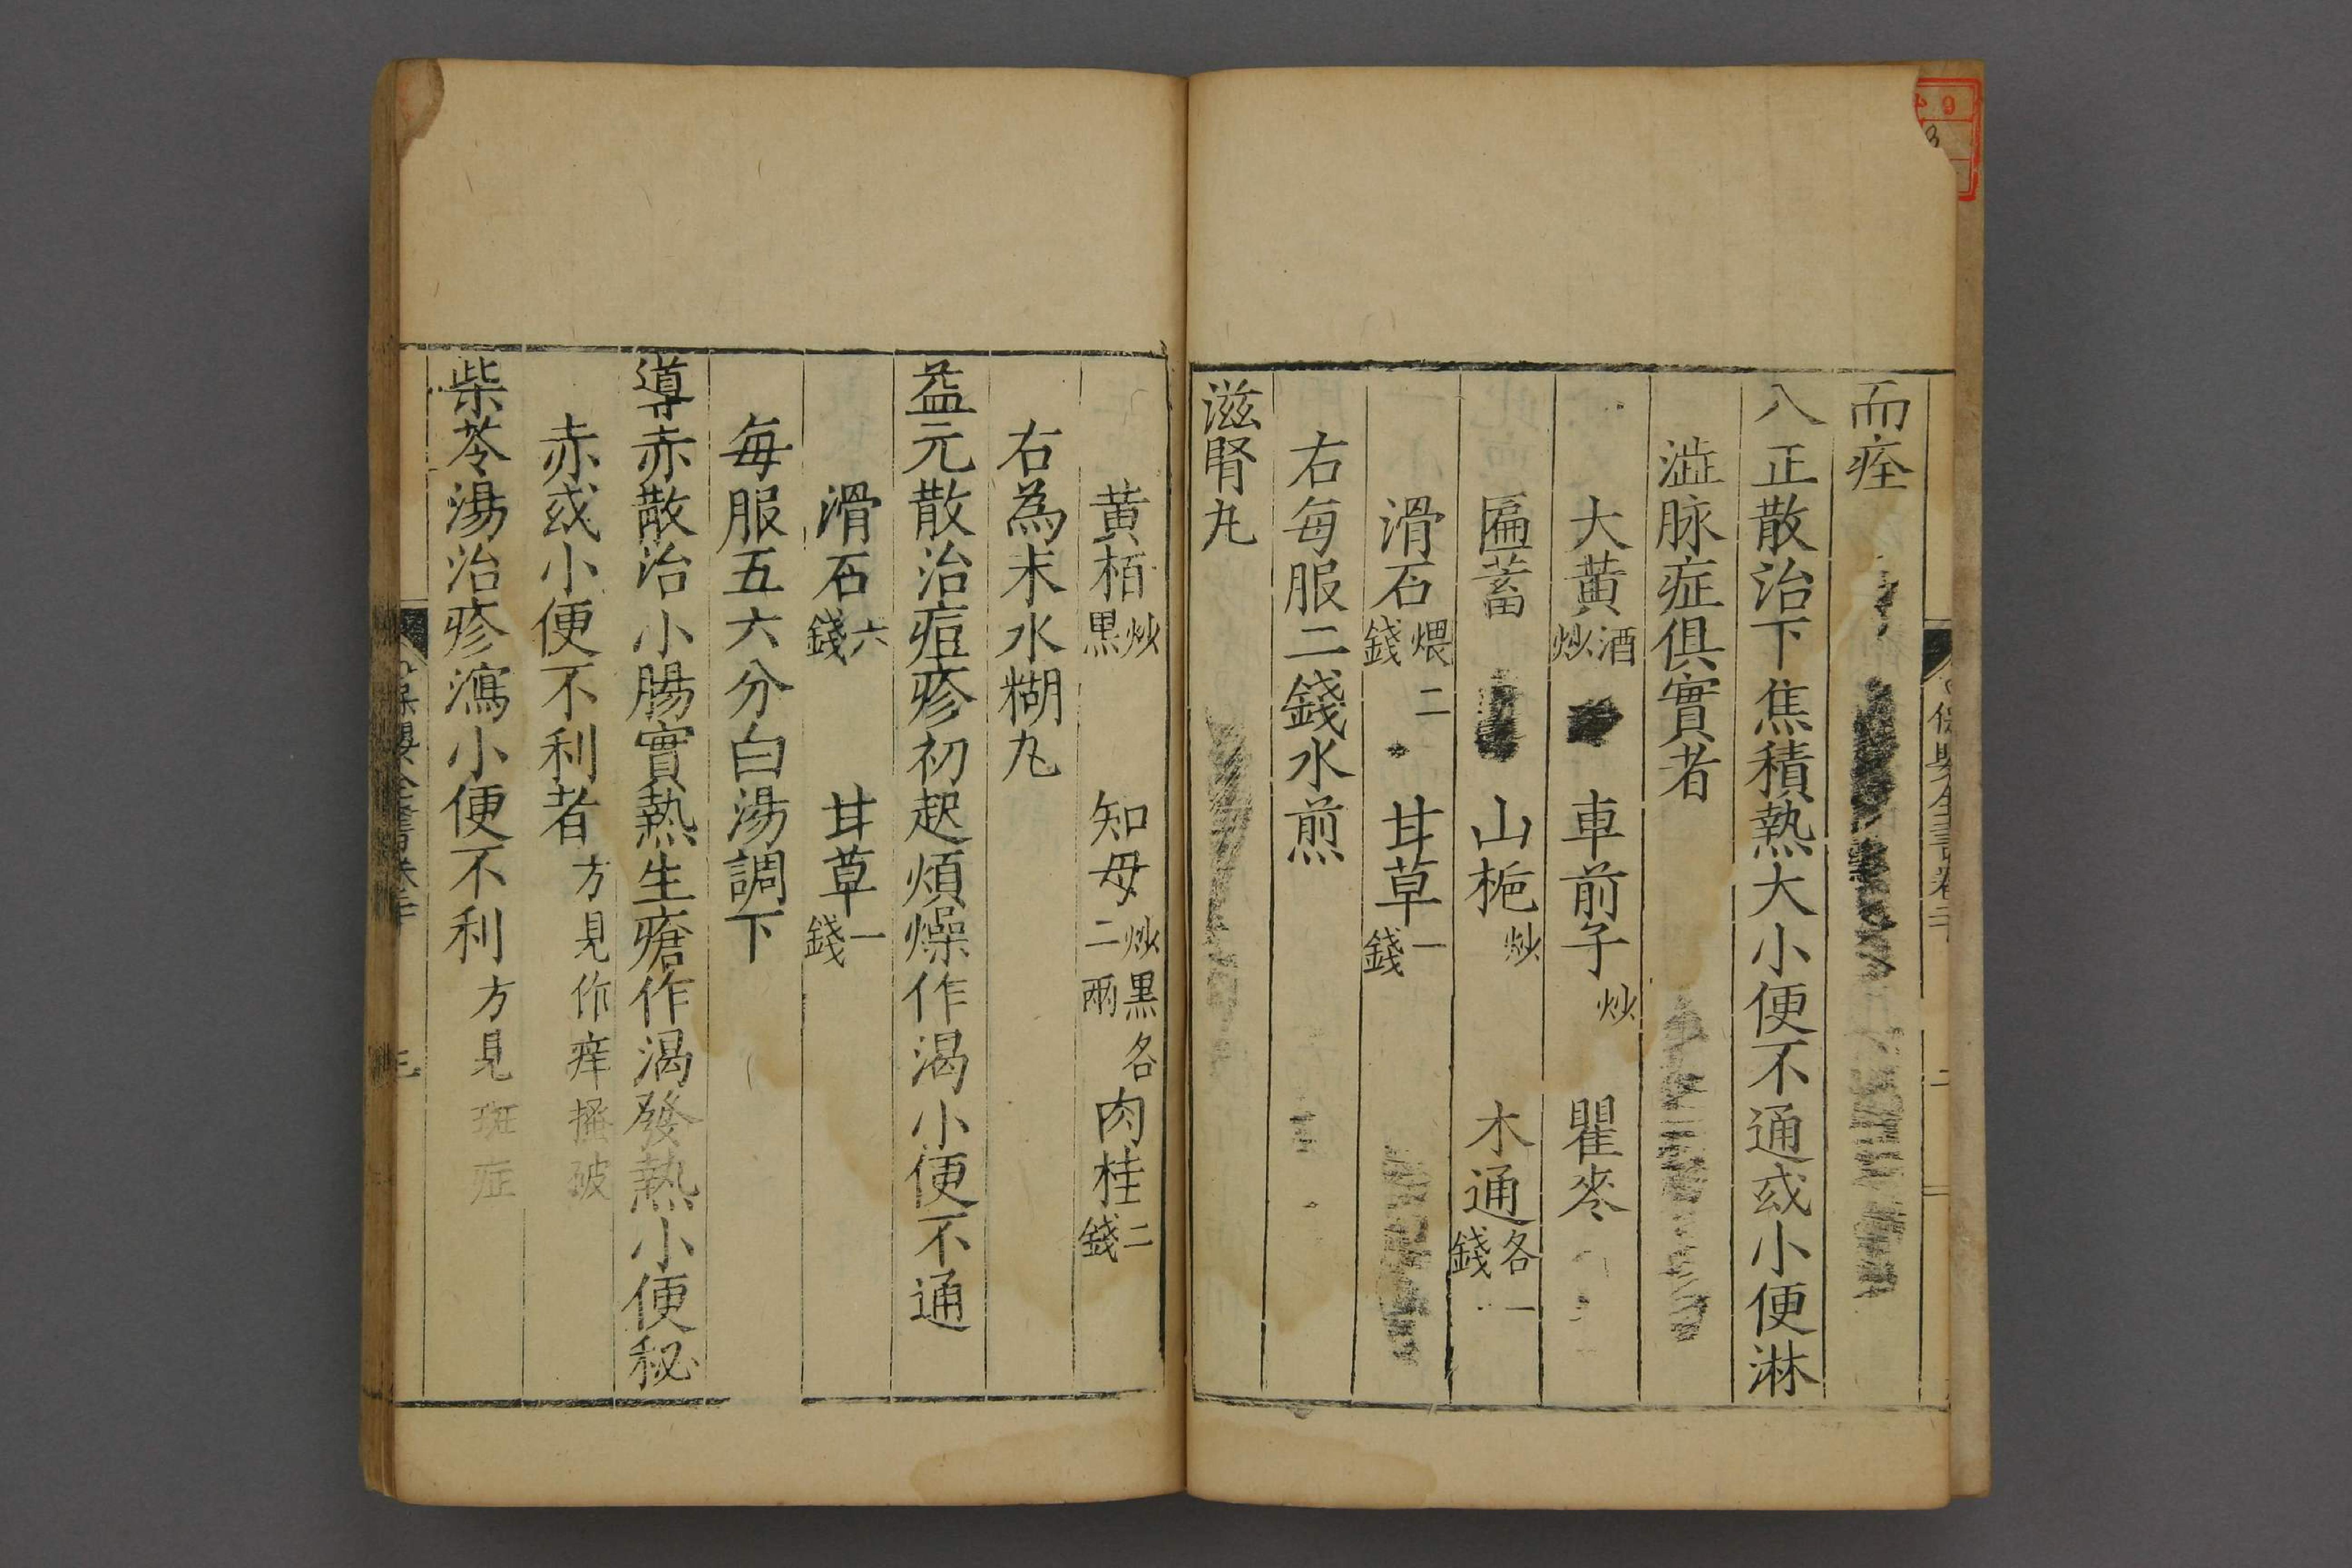 而痊
八正散治下焦積熱大小便不通或小便淋
澁脉症俱實者
大黄酒炒 車前子炒 瞿麥
匾蓄 山梔炒 木通各一錢
滑石煨二錢 甘草一錢
右每服二錢水煎
滋腎丸
黄栢炒黒 知母炒黒各二兩 肉桂二錢
右為末水糊丸
益元散治痘疹初起煩燥作渴小便不通
滑石六錢 甘草一錢
每服五六分白湯調下
導赤散治小腸實熱生瘡作渴發熱小便秘
赤或小便不利者方見作痒搔破
柴苓湯治疹瀉小便不利方見斑症